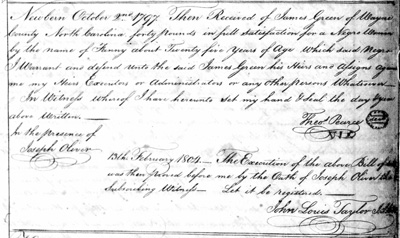 Newbern October 2nd 1797. Then Received of James Green of Wayne
County North Carolina forty pounds in full satisfaction for a Negro Woman
by the name of Fanny about Twenty five Years of Age which said Negro
I Warrant and defend unto the said James Green his Heirs and Assigns
me my Heirs Executors or Administrators or any other persons Whatsoever
In Witness whereof I have hereunto set my hand & Seal the day & year
above Written
Theo. Pearce
In the presence of
Joseph Oliver
13th February 1804 — The Execution of the above Bill of
was then proved before me by the Oath of Joseph Oliver the
Subscribing Witness — Let it be registered
John Louis Taylor